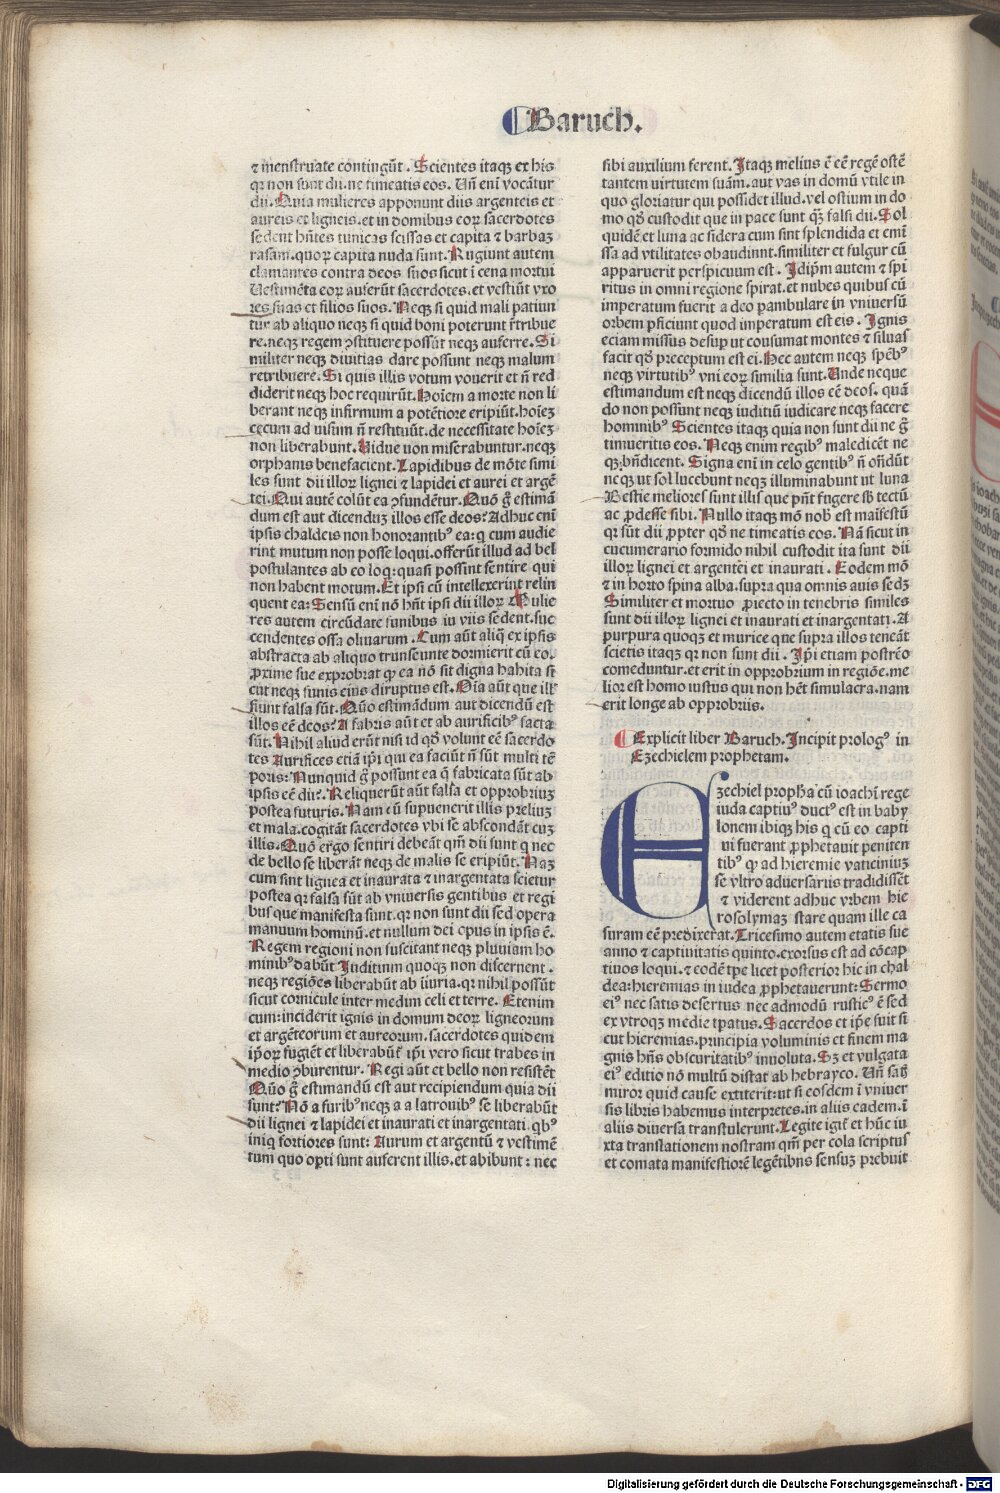 Baruch.
⁊ menstruate contingūt. Scientes itaqꝫ ex his
qꝛ non sunt dii. ne timeatis eos. Uñ eni vocātur
dii. Quia mulieres apponunt diis argenteis et
aureis et ligneis. et in domibus eoꝝ sacerdotes
sedent hñtes tunicas scissas et capita ⁊ barbaꝫ
rasam. quoꝝ capita nuda sunt. Rugiunt autem
clamantes contra deos suos sicut i cena mortui
Uestimēta eoꝝ auferūt sacerdotes. et vestiūt vxo
res suas et filios suos. Neqꝫ si quid mali patiun
tur ab aliquo neqꝫ si quid boni poterunt rētribue
re. neqꝫ regem ↄstituere possūt neqꝫ auferre. Si
militer neqꝫ diuitias dare possunt neqꝫ malum
retribuere. Si quis illis votum vouerit et ñ red
diderit neqꝫ hoc requirūt. Hoīem a morte non li
berant neqꝫ infirmum a potētiore eripiūt. hoīeꝫ
cecum ad uisum ñ restituūt. de necessitate hoīeꝫ
non liberabunt. Uidue non miserabuntur. neqꝫ
orphanis benefacient. Lapidibus de mōte simi
les sunt dii illoꝝ lignei ⁊ lapidei et aurei et argē
tei. Qui autē colūt ea ↄfundētur. Quō g̃ estimā
dum est aut dicenduꝫ illos esse deos? Adhuc eni
ipsis chaldeis non honorantibꝰ ea: q cum audie
rint mutum non posse loqui. offerūt illud ad bel
postulantes ab eo loq: quasi possint sentire qui
non habent motum. Et ipsi cū intellexerint relin
quent ea: Sensū eni nō hñt ipsi dii illoꝝ Mulie
res autem circūdate funibus in viis sedent. suc
cendentes ossa oliuarum. Cum aūt aliq̄ ex ipsis
abstracta ab aliquo transeunte dormierit cū eo.
ꝓxime sue exprobrat ꝙ ea nō sit digna habita si
cut neqꝫ funis eius diruptus est. Oīa aūt que ill̃
fiunt falsa sūt. Quō estimādum aut dicendū est
illos eē deos? A fabris aūt et ab aurificibꝰ facta
sūt. Nihil aliud erūt nisi id qð volunt eē sacerdo
tes Aurifices etiā ipi qui ea faciūt ñ sūt multi tē
poris: Nunquid g̃ possunt ea q̄ fabricata sūt ab
ipsis eē dii? Reliquerūt aūt falsa et opprobriuꝫ
postea futuris. Nam cū supuenerit illis preliuꝫ
et mala. cogitāt sacerdotes vbi se abscondāt cuꝫ
illis. Quō ergo sentiri debeāt qm̄ dii sunt q nec
de bello se liberāt neqꝫ de malis se eripiūt. Naꝫ
cum sint lignea et inaurata ⁊ inargentata scietur
postea qꝛ falsa sūt ab vniuersis gentibus et regi
bus que manifesta sunt. qꝛ non sunt dii sed opera
manuum hominū. et nullum dei opus in ipsis ē.
Regem regioni non suscitant neqꝫ pluuiam ho
minibꝰ dabūt Juditium quoqꝫ non discernent.
neqꝫ regiōes liberabūt ab iiuria. qꝛ nihil possūt
sicut cornicule inter medim celi et terre. Etenim
cum: inciderit ignis in domum deoꝝ ligneorum
et argēteorum et aureorum. sacerdotes quidem
ipoꝝ fugiēt et liberabūt̃ ipi vero sicut trabes in
medio ↄburentur. Regi aūt et bello non resistēt
Quō g̃ estimandū est aut recipiendum quia dii
sunt? Nō a furibꝰ neqꝫ a a latronibꝰ se liberabūt
dii lignei ⁊ lapidei et inaurati et inargentati. qbꝰ
iniq fortiores sunt: Aurum et argentū ⁊ vestimē
tum quo opti sunt auferent illis. et abibunt: nec
sibi auxilium ferent. Itaqꝫ melius ē eē regē ostē
tantem uirtutem suam. aut vas in domū vtile in
quo gloriatur qui possidet illud. vel ostium in do
mo qð custodit que in pace sunt qꝫ falsi dii. Sol
quidē et luna ac sidera cum sint splendida et emi
ssa ad vtilitates obaudiunt. similiter et fulgur cū
apparuerit perspicuum est. Idipm autem ⁊ spi
ritus in omni regione spirat. et nubes quibus cū
imperatum fuerit a deo pambulare in vniuersū
orbem pficiunt quod imperatum est eis. Ignis
eciam missus desup ut cousumat montes ⁊ siluas
facit qð preceptum est ei. Hec autem neqꝫ spēbꝰ
neqꝫ virtutibꝰ vni eoꝝ similia sunt. Unde neque
estimandum est neqꝫ dicendū illos eē deos. quā
do non possunt neqꝫ iuditiū iudicare neqꝫ facere
hominibꝰ Scientes itaqꝫ quia non sunt dii ne g̃
timueritis eos. Neqꝫ enim regibꝰ maledicēt ne
qꝫ: bñdicent. Signa eni in celo gentibꝰ ñ oñdūt
neqꝫ ut sol lucebunt neqꝫ illuminabunt ut luna
Bestie meliores sunt illis que pñt fugere sb tectū
ac ꝓdesse sibi. Nullo itaqꝫ mō nob̄ est maifestū
qꝛ sūt dii ꝓpter qð ne timeatis eos. Nā sicut in
cucumerario formido nihil custodit ita sunt dii
illoꝝ lignei et argentei et inaurati. Eodem mō
⁊ in horto spina alba. supra qua omnis auis sedꝫ
Similiter et mortuo ꝓiecto in tenebris similes
sunt dii illoꝝ lignei et inaurati et inargentati. A
purpura quoqꝫ et murice que supra illos teneāt
scietis itaqꝫ qꝛ non sunt dii. Ipi etiam postrēo
comeduntur. et erit in opprobrium in regiōe. me
lior est homo iustus qui non hēt simulacra. nam
erit longe ab opprobriis.
Explicit liber Baruch. Incipit prologꝰ in
Ezechielem prophetam.
Ezechiel propha cū ioachī rege
iuda captiuꝰ ductꝰ est in baby
lonem ibiqꝫ his q cū eo capti
ui fuerant ꝓphetauit peniten
tibꝰ ꝙ ad hieremie vaticiniuꝫ
se vltro aduersariis tradidissēt
⁊ viderent adhuc vrbem hie
rosolymaꝫ stare quam ille ca
suram eē predixerat. Tricesimo autem etatis sue
anno ⁊ captiuitatis quinto. exorsus est ad cōcap
tiuos loqui. ⁊ eodē tpe licet posterior hic in chal
dea: hieremias in iudea ꝓphetauerunt: Sermo
eiꝰ nec satis desertus nec admodū rusticꝰ ē sed
ex vtroqꝫ medie tpatus. Sacerdos et ipe fuit si
cut hieremias. principia voluminis et finem ma
gnis hñs obscuritatibꝰ inuoluta. Sꝫ et vulgata
eiꝰ editio nō multū distat ab hebrayco. Uñ satꝫ
miror quid cause extiterit: ut si eosdem i vniuer
sis libris habemus interpretes. in aliis eadem. i
aliis diuersa transtulerunt. Legite igit̃ et hūc iu
xta translationem nostram qm̄ per cola scriptus
et comata manifestiorē legētibus sensuꝫ prebuit
Digitalisierung gefördert durch die Deutsche Forschungsgemeinschaft - DFG